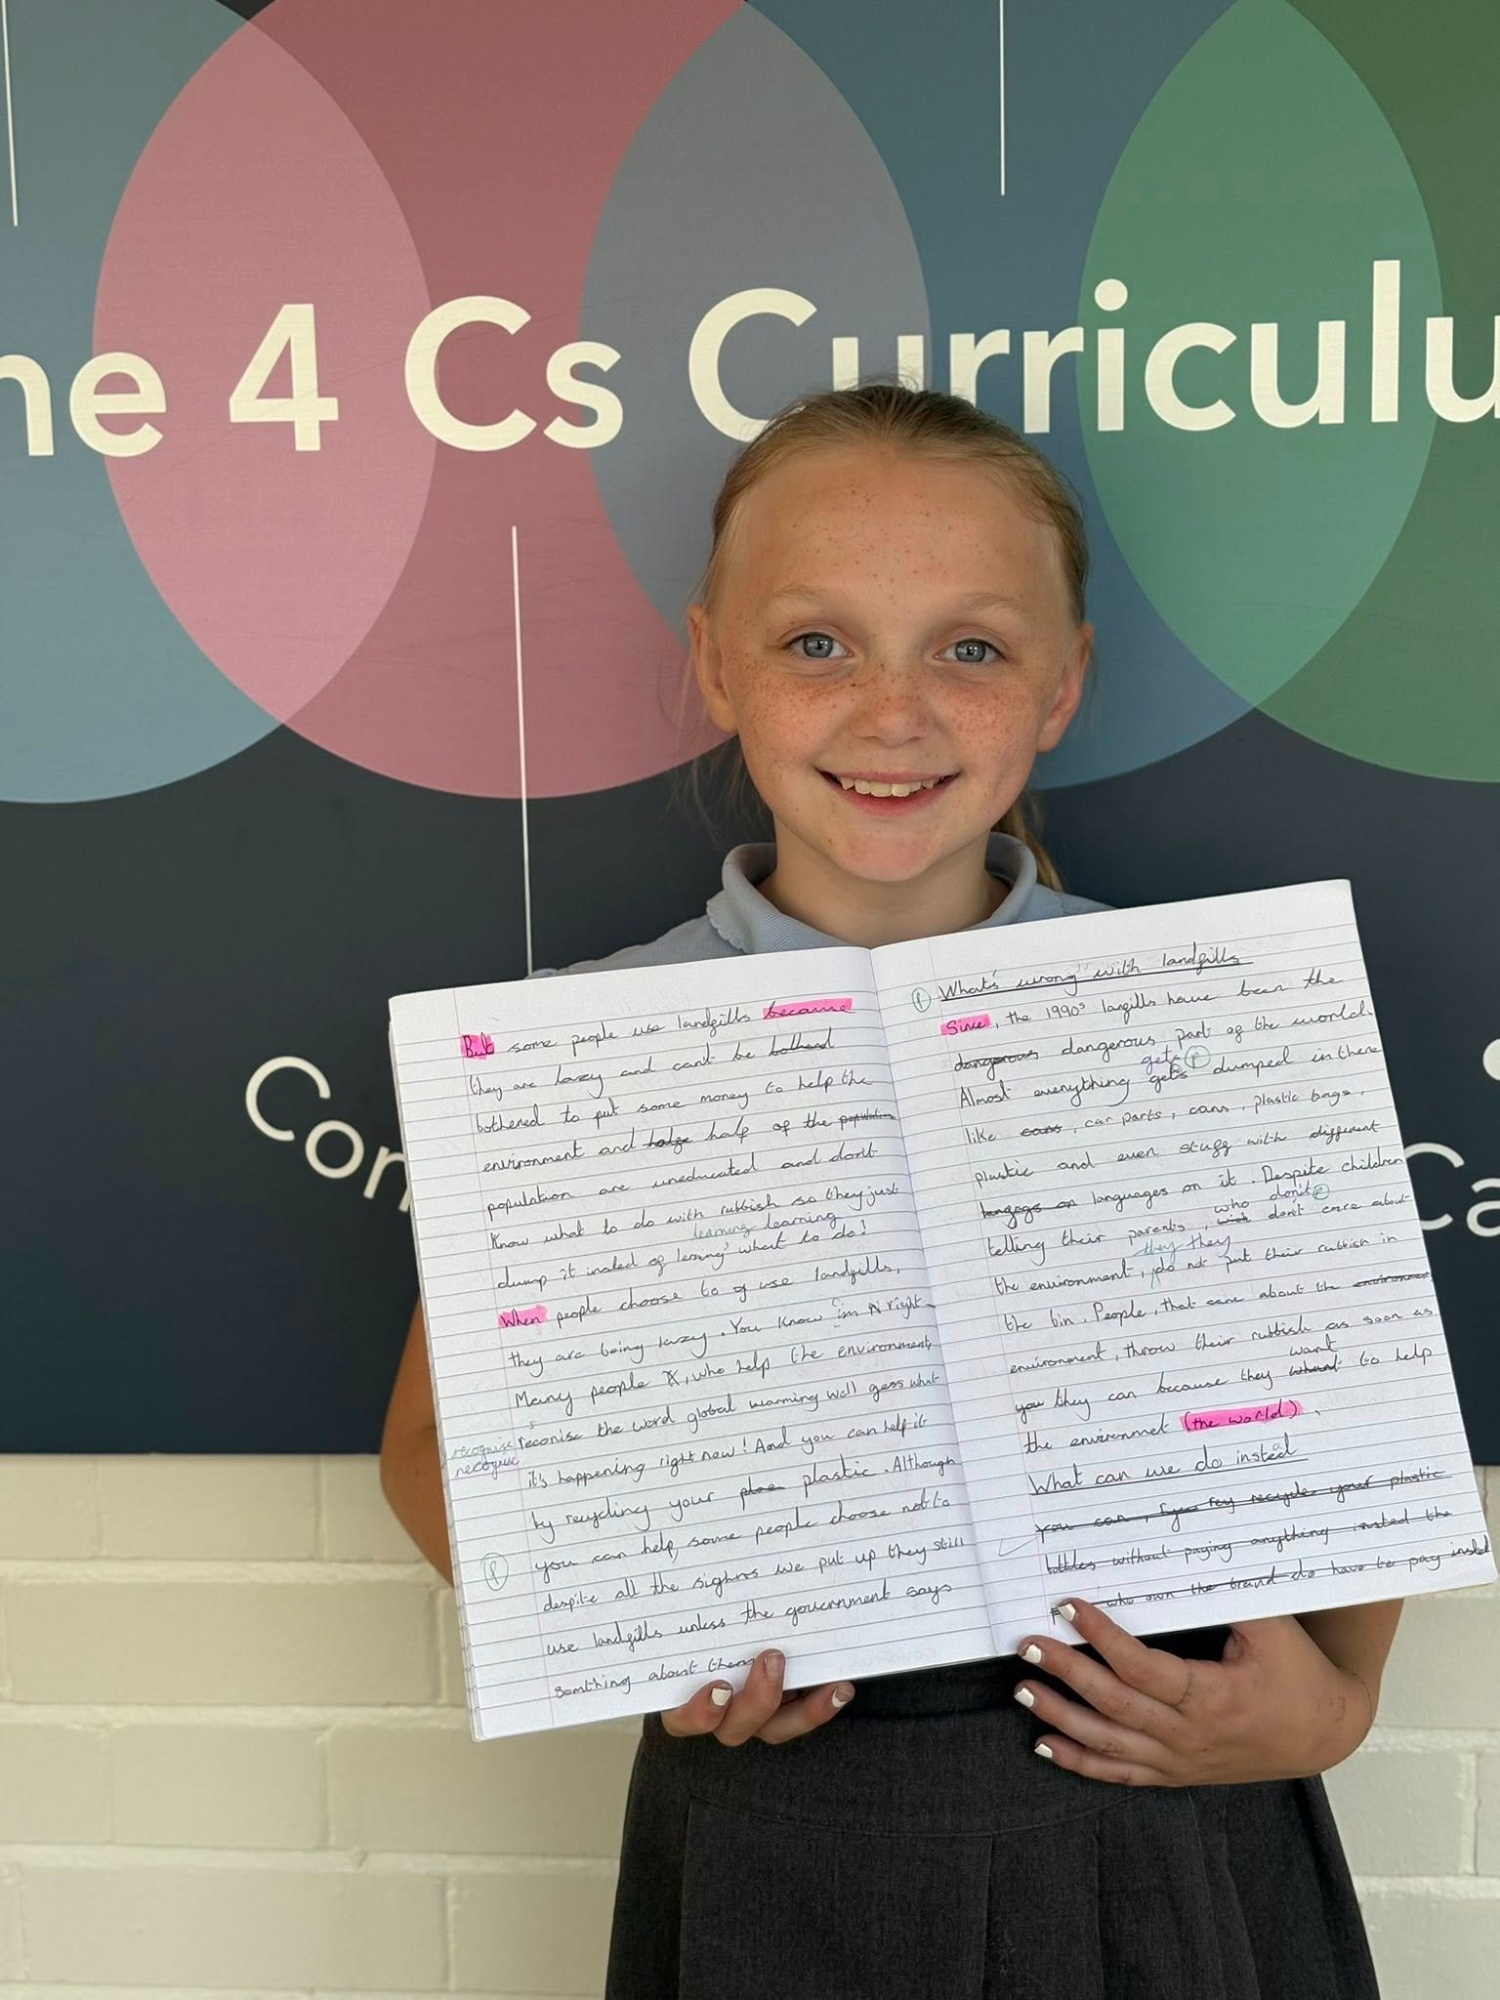 he 4 Cs Curriculu
Con
Ca
But some people use landfills because
they are lazy and can't be bothered
bothered to put some money to help the
environment and half of the
population are uneducated and don't
know what to do with rubbish so they just
learning learning
dump it insted of lerning what to do!
When people choose to use landfills,
they are being lazy. You know im right
Many people, who help the environment,
recognise reconise the word global warming well gess what
recognise
it's happening right now! And you can help it
by recycling your plastic. Although
you can help, some people choose not to
despite all the sighns we put up they still
use landfills unless the government says
somthing about them
What's wrong with landfills
Since, the 1990s langills have been the
dangerous dangerous part of the world.
gets
Almost everything gets dumped in there
like cans, car parts, cans, plastic bags,
plastic and even stuff with different
languages on it. Despite children
who don't
telling their parents, don't care about
they they
the environment, do not put their rubbish in
the bin. People, that care about the environment
environment, throw their rubbish as soon as
want
you they can because they whant to help
the environmet (the world).
What can we do insted
you can, recycle your plastic
bottles without paying anything insted the
who own the brand do have to pay insted